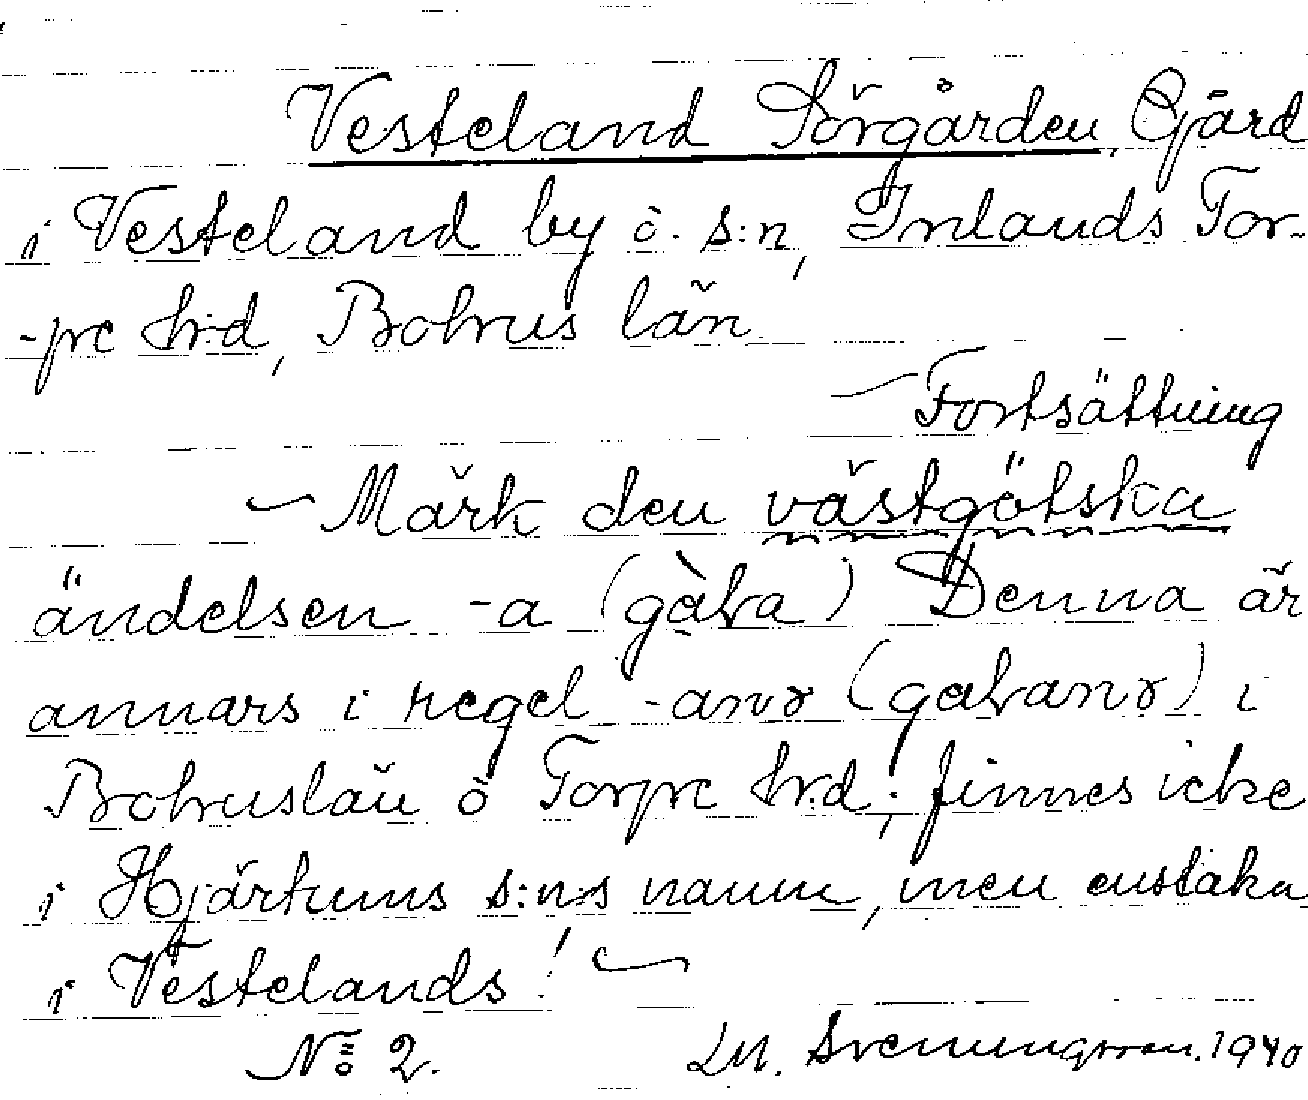 Vesteland Sörgården, Gård
i Vesteland by o. s:n, Inlands Tor-
-pe hrd, Bohus län.
— Fortsättning
— Märk den västgötska
ändelsen -a (gàta) Denna är
annars i regel -anɤ (gatanɤ) i
Bohuslän o Torpe hrd; finnes icke
i Hjärtums s:n:s namn, men enstaka
i Vestelands! —
No 2. Lm. Svenungsson. 1940